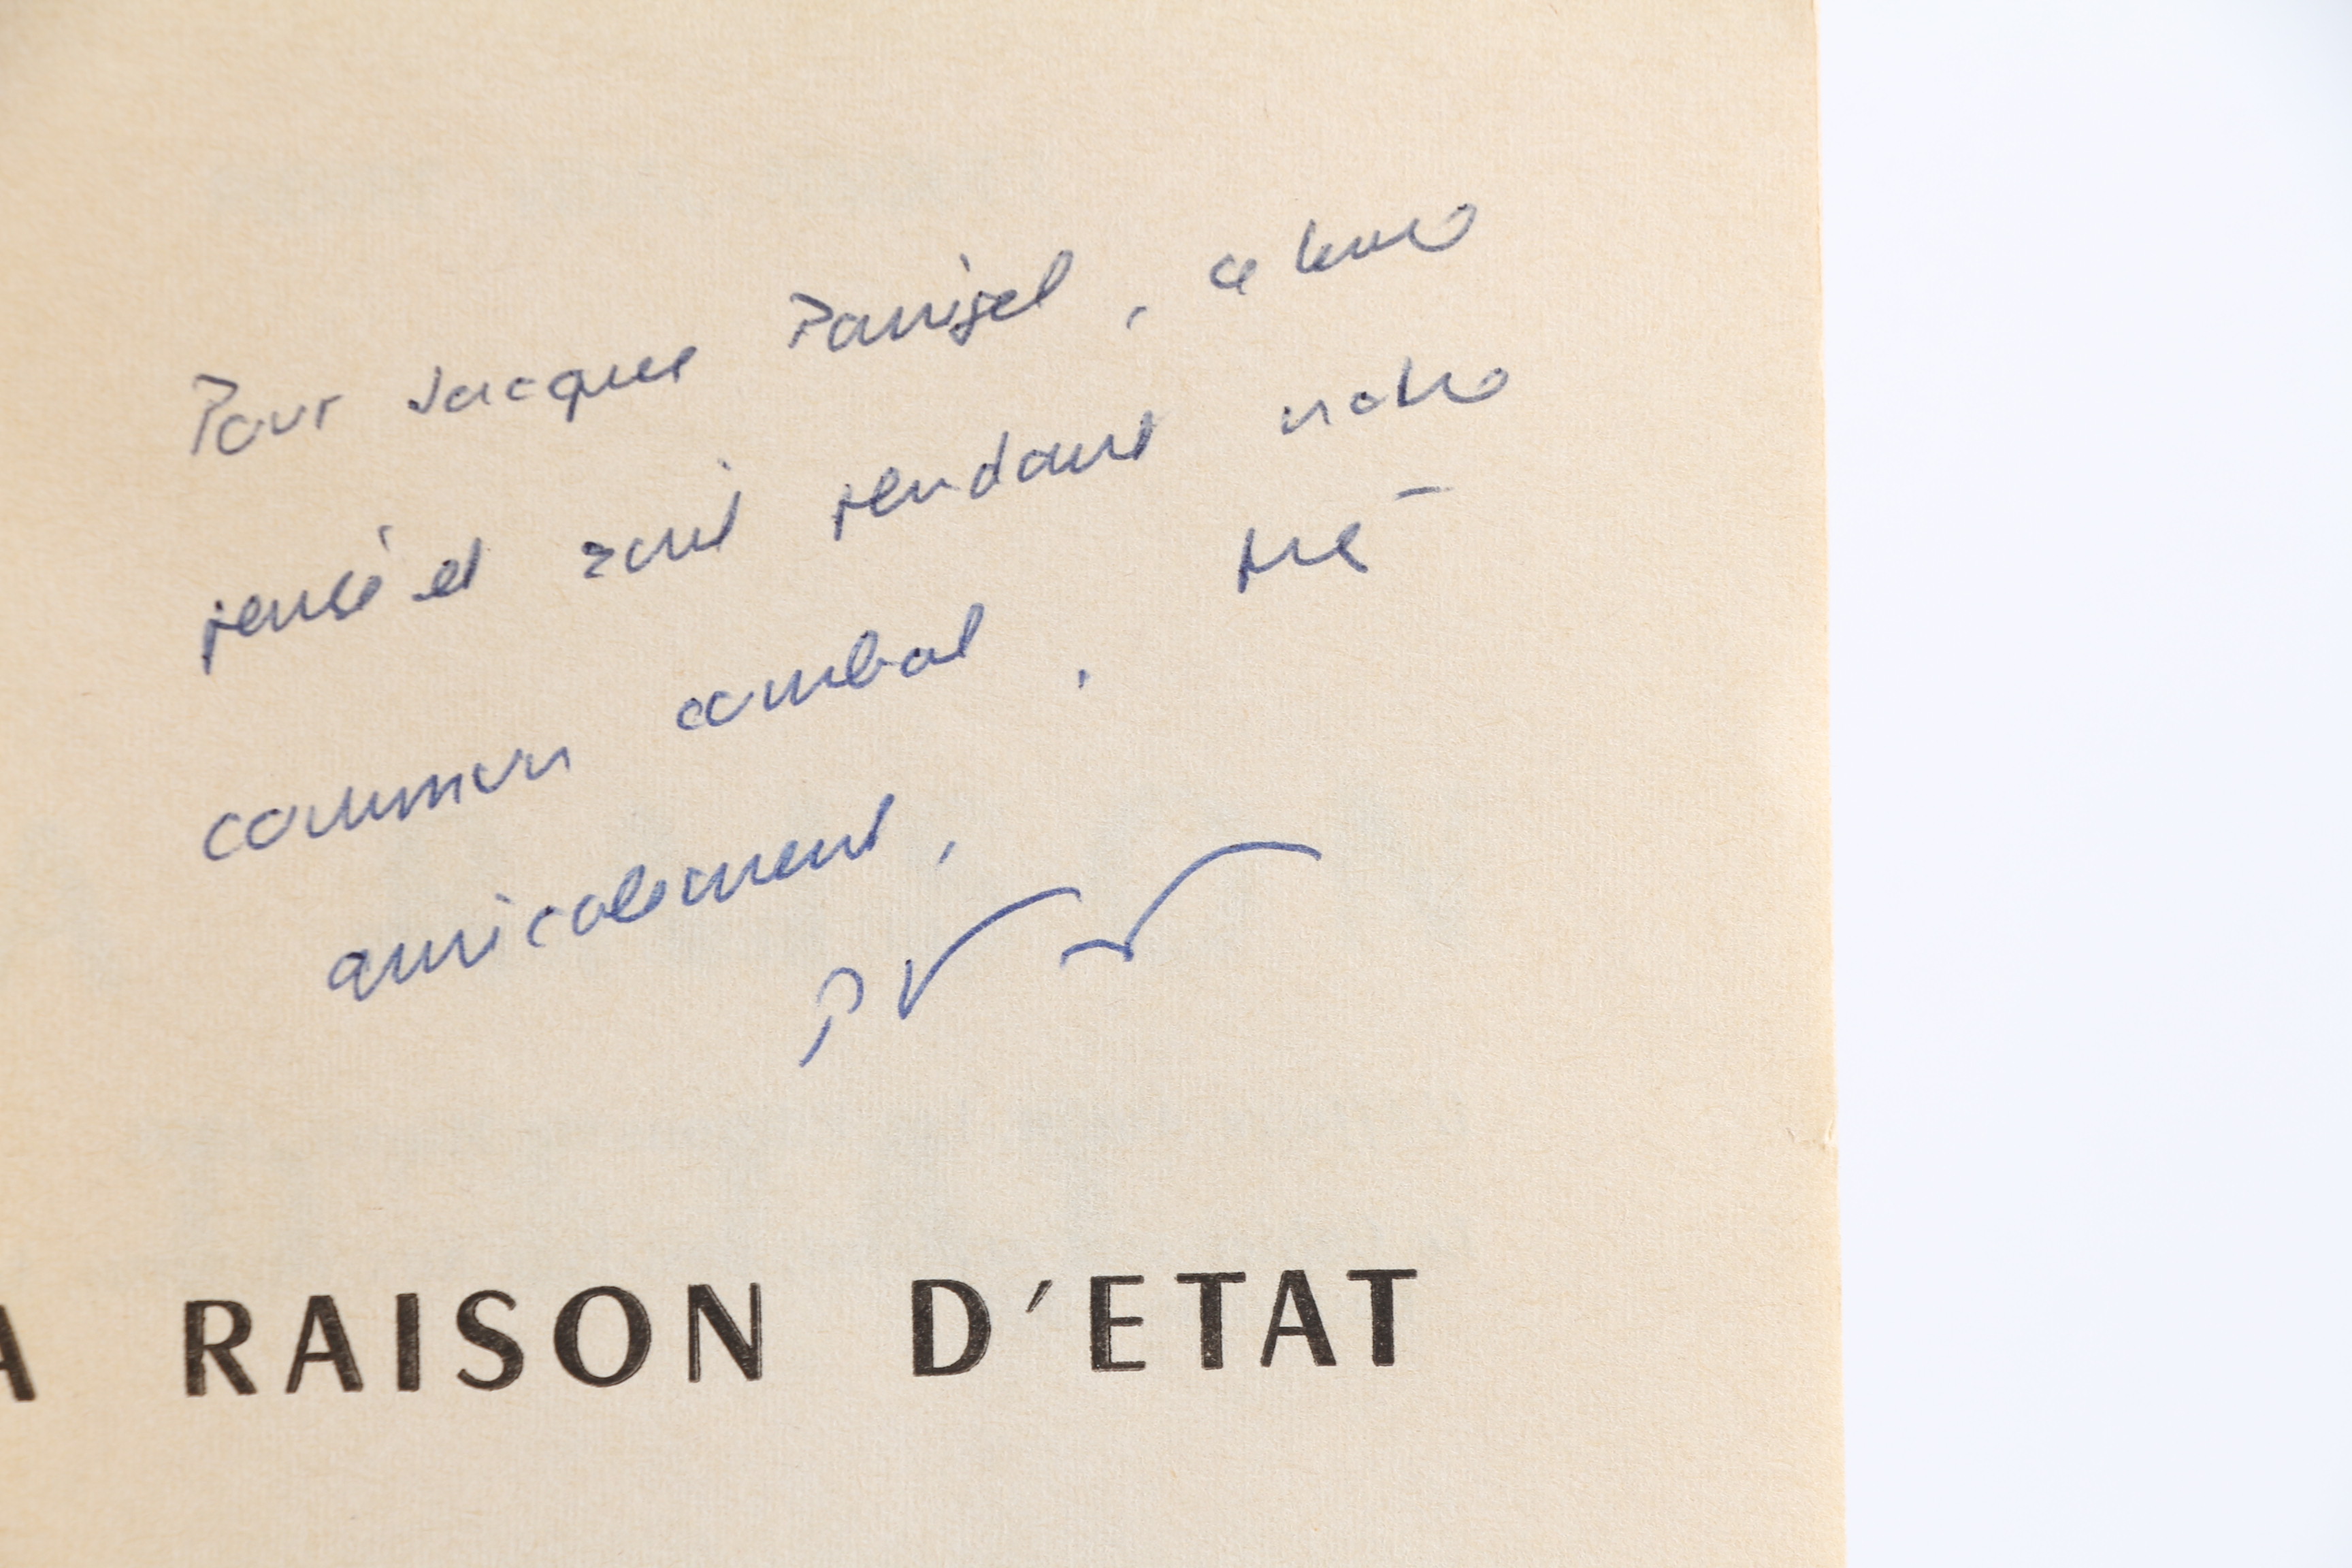 Pour Jacques Panijel, ce livre
pensé et écrit pendant notre
commun combat. Très
amicalement,
P V
A RAISON D'ETAT